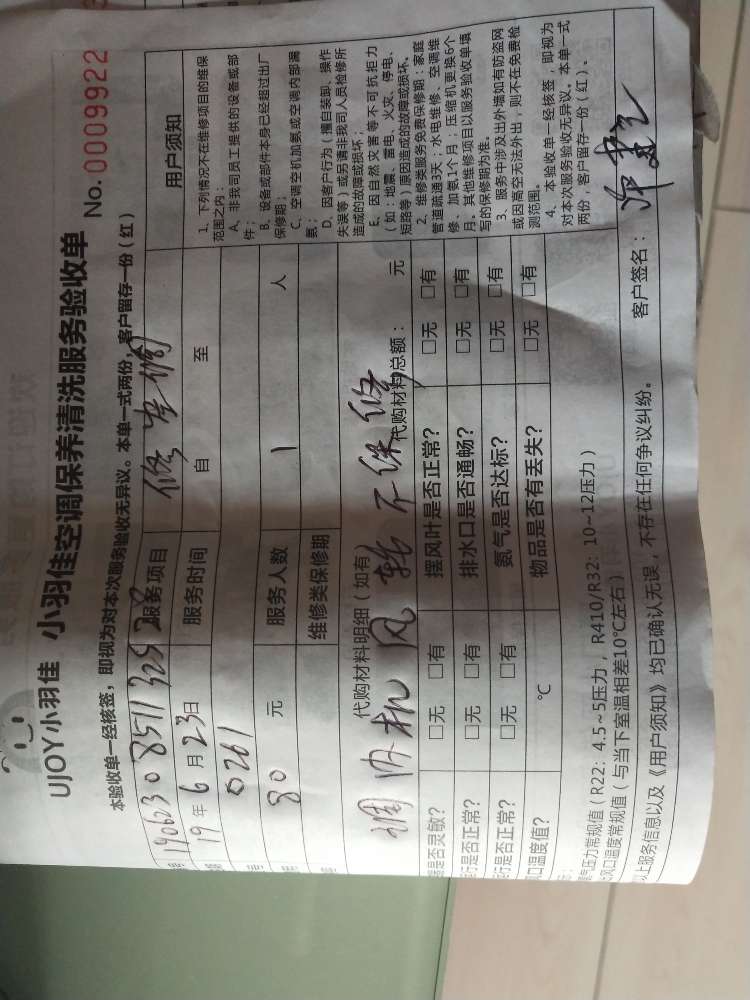 UJOY小羽佳 小羽佳空调保养清洗服务验收单 No.0009922
本验收单一经核签,即视为对本次服务验收无异议。本单一式两份,客户留存一份(红)
服务项目 修空调
19年6月23日 服务时间 自 至
0261
80 元 服务人数 1 人
维修类保修期
代购材料明细(如有) 代购材料总额: 元
调内机风 不保修
是否灵敏? □无 □有 摆风叶是否正常? □无 □有
行是否正常? □无 □有 排水口是否通畅? □无 □有
行是否正常? □无 □有 氨气是否达标? □无 □有
风口温度值? ℃ 物品是否有丢失? □无 □有
用户须知
1、下列情况不在维修项目的维保
范围之内:
A、非我司员工提供的设备或部
件;
B、设备或部件本身已经超过出厂
保修期;
C、空调空机加氨或空调内部漏
氨;
D、因客户行为(擅自装卸、操作
失误等)或另请非我司人员检修所
造成的故障或损坏;
E、因自然灾害等不可抗拒力
(如:地震、雷电、火灾、停电、
短路等)原因造成的故障或损坏。
2、维修类服务免费保修期:家庭
管道疏通3天;水电维修、空调维
修、加氨1个月;压缩机更换6个
月。其他维修项目以服务验收单填
写的保修期为准。
3、服务中涉及出外墙如有防盗网
或因高空无法外出,则不在免费检
测范围。
4、本验收单一经核签,即视为
对本次服务验收无异议。本单一式
两份,客户留存一份(红)。
氨气压力常规值(R22:4.5~5压力,R410/R32:10~12压力)
风口温度常规值(与当下室温相差10℃左右)
以上服务信息以及《用户须知》均已确认无误,不存在任何争议纠纷。 客户签名: